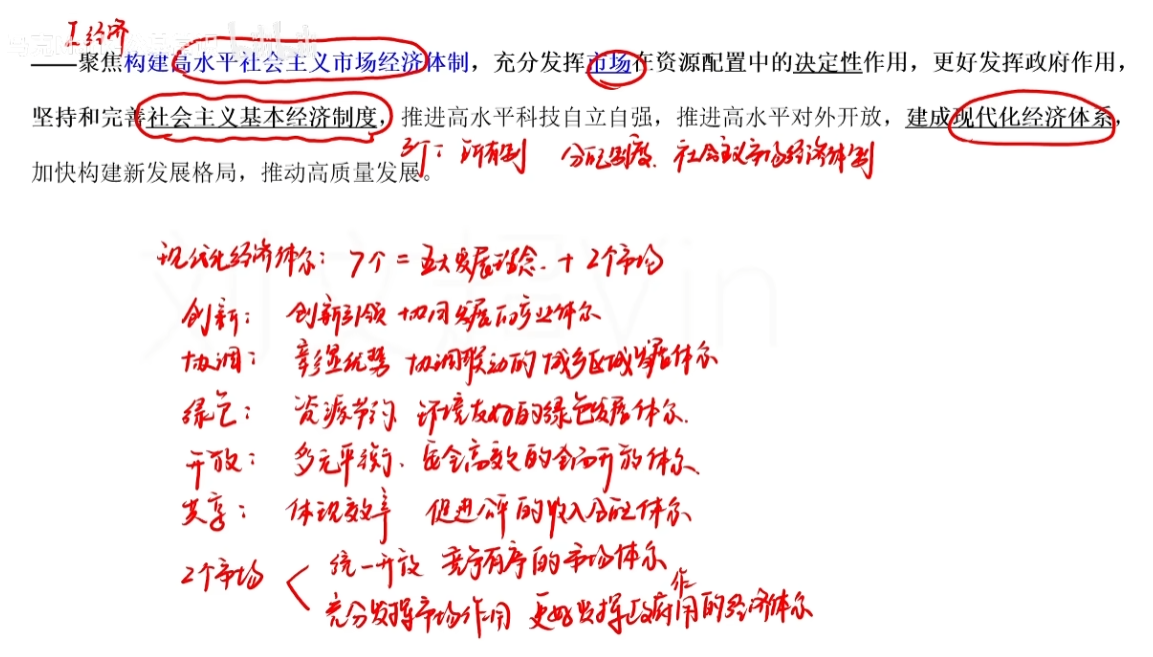 I 经济
——聚焦构建高水平社会主义市场经济体制，充分发挥市场在资源配置中的决定性作用，更好发挥政府作用，
坚持和完善社会主义基本经济制度，推进高水平科技自立自强，推进高水平对外开放，建成现代化经济体系，
3个：所有制 分配制度 社会主义市场经济体制
加快构建新发展格局，推动高质量发展。
现代化经济体系：7个 = 五大发展理念 + 2个市场
创新：创新引领 协同发展的产业体系
协调：彰显优势 协调联动的城乡区域发展体系
绿色：资源节约 环境友好的绿色发展体系.
开放：多元平衡、安全高效的全面开放体系.
共享：体现效率 促进公平的收入分配体系
2个市场 统一开放 竞争有序的市场体系
充分发挥市场作用 更好发挥政府作用的经济体系